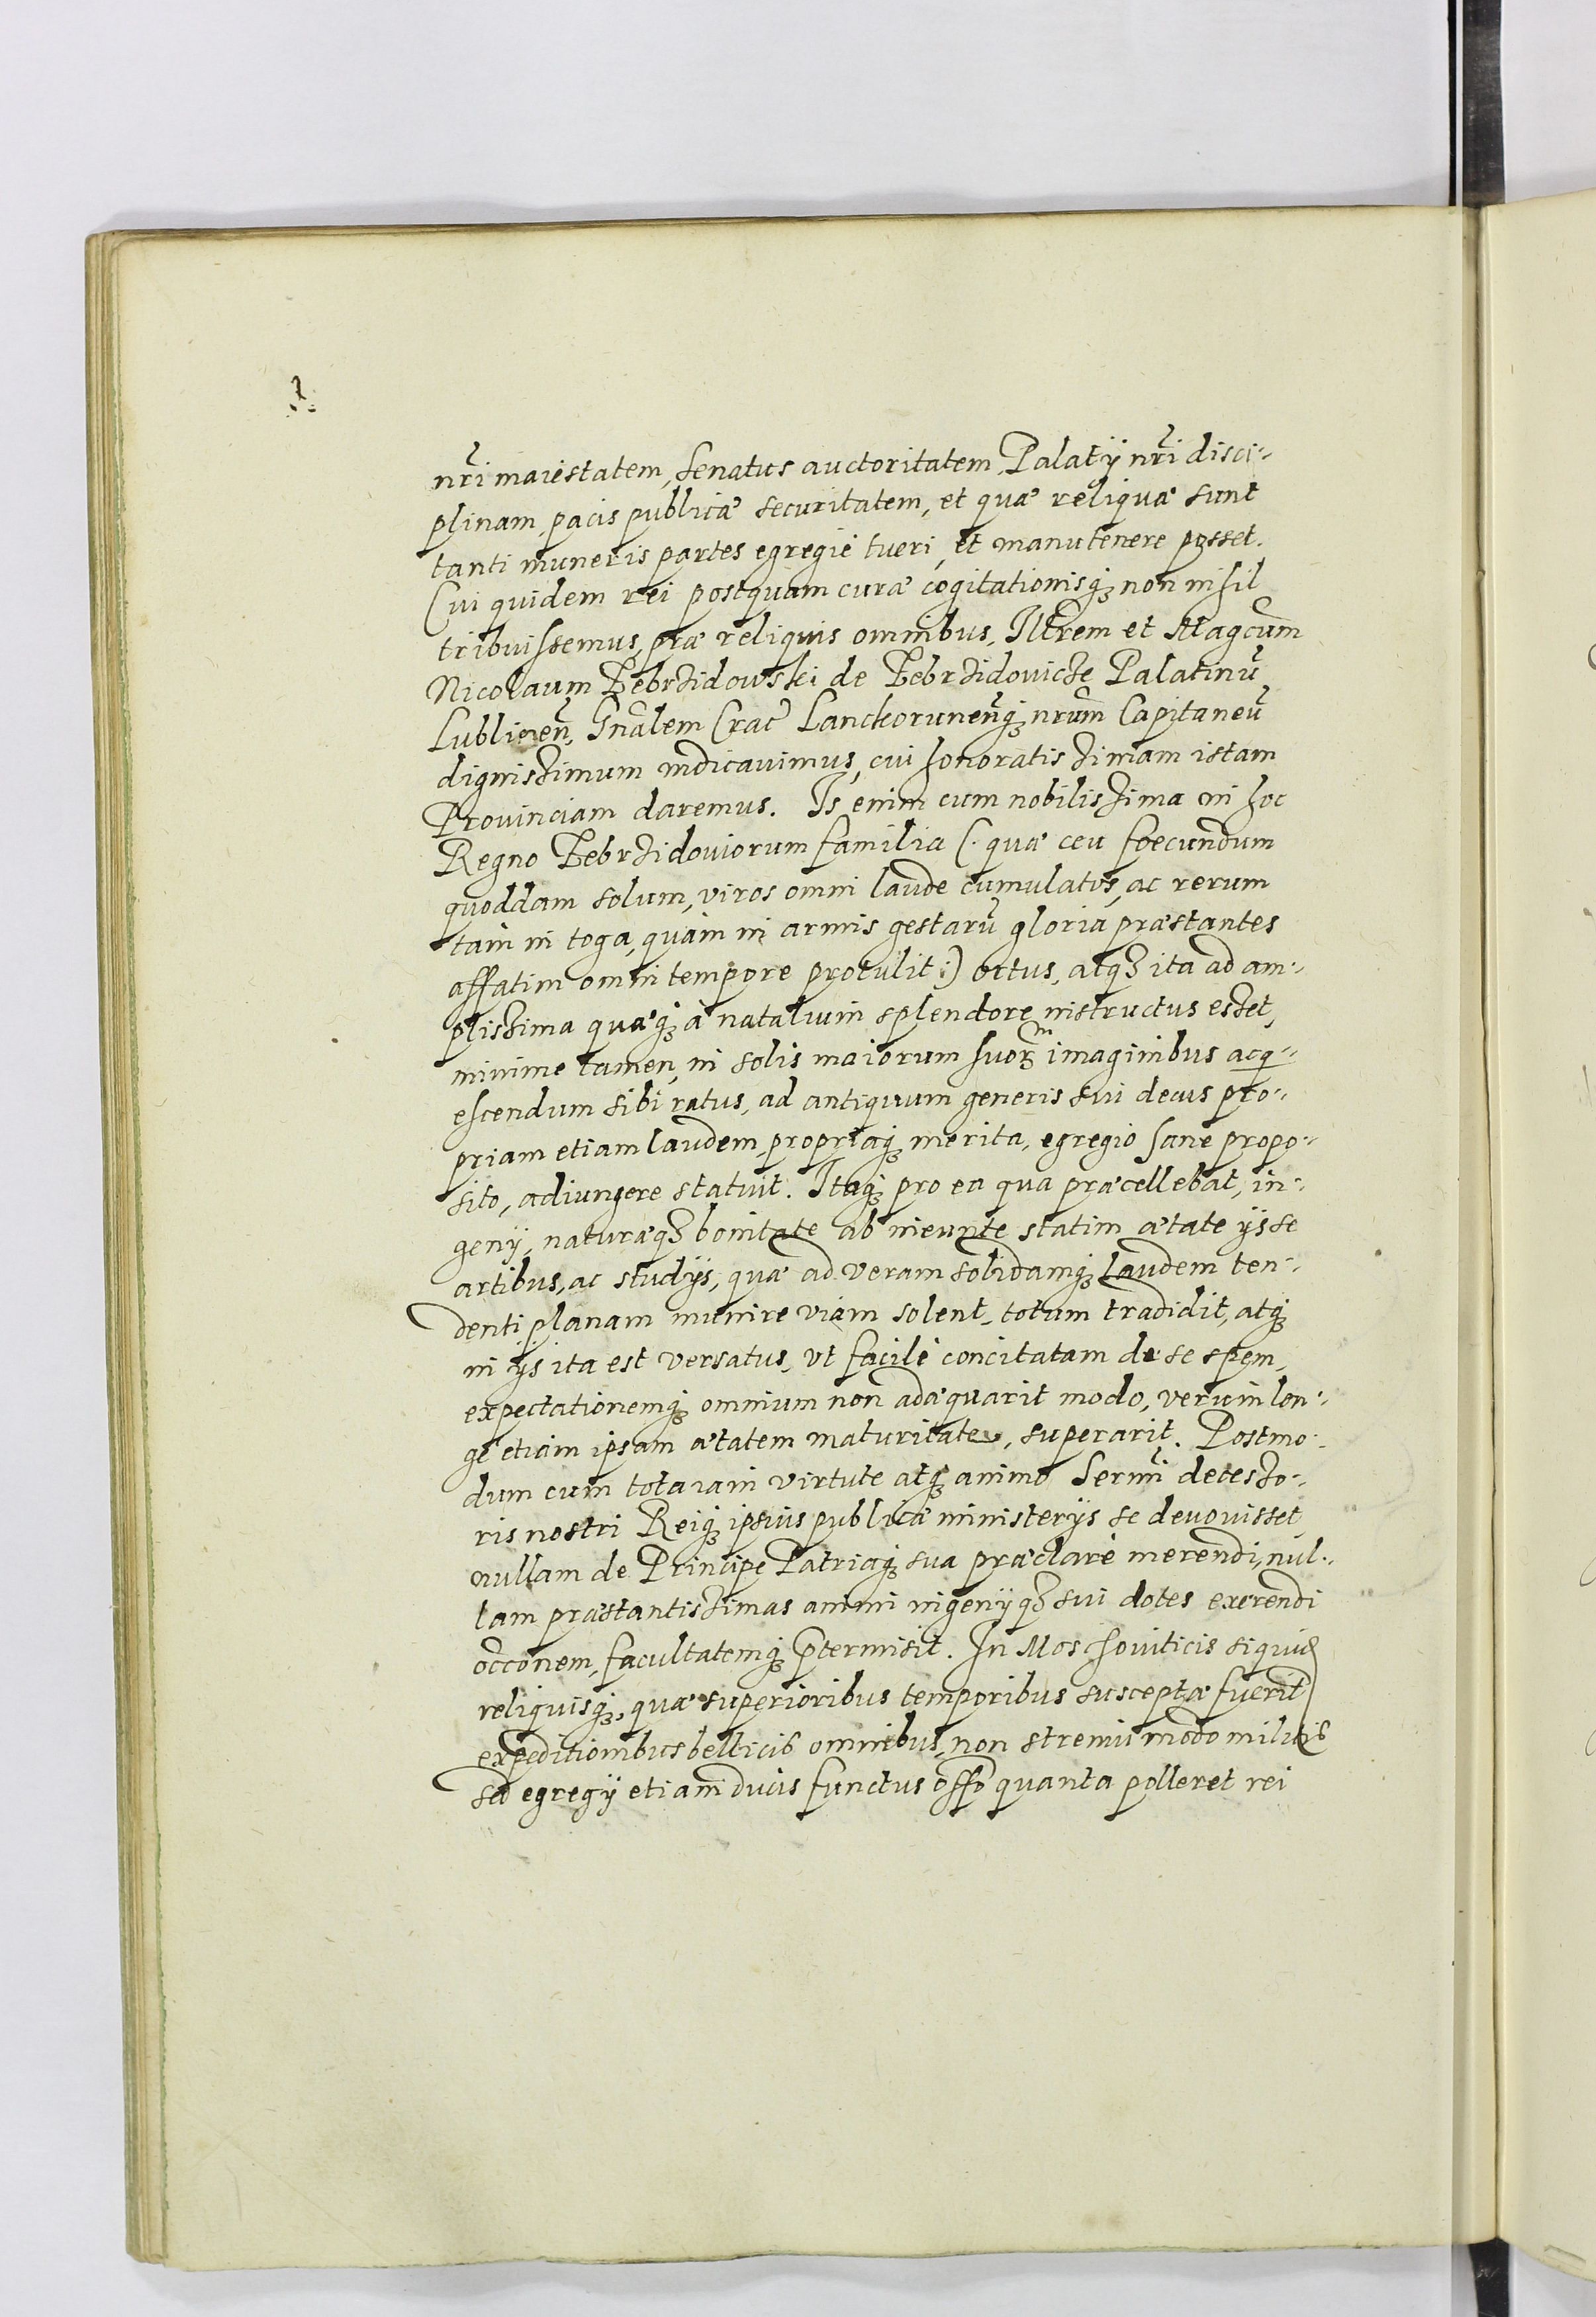 nr̃i maiestatem, senatus auctoritatem, Palatÿ nr̃i disci-
plinam, pacis publicæ securitatem, et quæ reliquæ sunt
tanti muneris partes egregiè tueri, et manutenere posset.
Cui quidem rei postquam curæ cogitationisq; non nihil
tribuissemus, præ reliquis omnibus, Illrem et Magcum
Nicolaum Zebrzidowski de Zebrzidovicze Palatinũ
Lublineñ, Gnãlem Crac̃ Lanckoruneñq; nrum̃ Capitaneũ
dignissimum indicavimus, cui honoratissimam istam
Provinciam daremus. Is enim cum nobilissima in hoc
Regno Zebrzidoviorum familia (. quæ ceu foecundum
quoddam solum, viros omni laude cumulatos, ac rerum
tam in toga, quàm in armis gestarũ gloria præstantes
affatim omni tempore protulit :) ortus, atq; ita ad am-
plissima quæq; à natalium splendore instructus esset,
minime tamen, in solis maiorum suorm̃ imaginibus acq-
escendum sibi ratus, ad antiquum generis sui decus pro-
priam etiam laudem propriaq; merita, egregio sane propo-
sito, adiungere statuit. Itaq; pro ea qua præcellebat, in-
genÿ, naturæq; bonitate ab ineunte statim ætate ÿs se
artibus, ac studÿs, quæ ad veram solidamq; laudem ten-
denti planam munire viam solent, totum tradidit, atq;
in ÿs ita est versatus, vt facilè concitatam de se spem,
expectationemq; omnium non adæquarit modo, verum lon-
gè etiam ipsam ætatem maturitate, superarit. Postmo-
dum cum tota iam virtute atq; animo Sermi decesso-
ris nostri Reiq; ipsius publicæ ministerÿs se devovisset,
nullam de Principe Patriaq; sua præclarè merendi, nul-
lam præstantissimas animi ingenÿq; sui dotes exerendi
occõnem, facultatemq; p̃termisit. In Moschoviticis siquid
reliquisq;, quæ superioribus temporibus susceptæ fuerit̃
expeditionibus bellicis omnibus, non strenui modo militis
sed egregÿ etiam ducis functus offõ quanta polleret rei